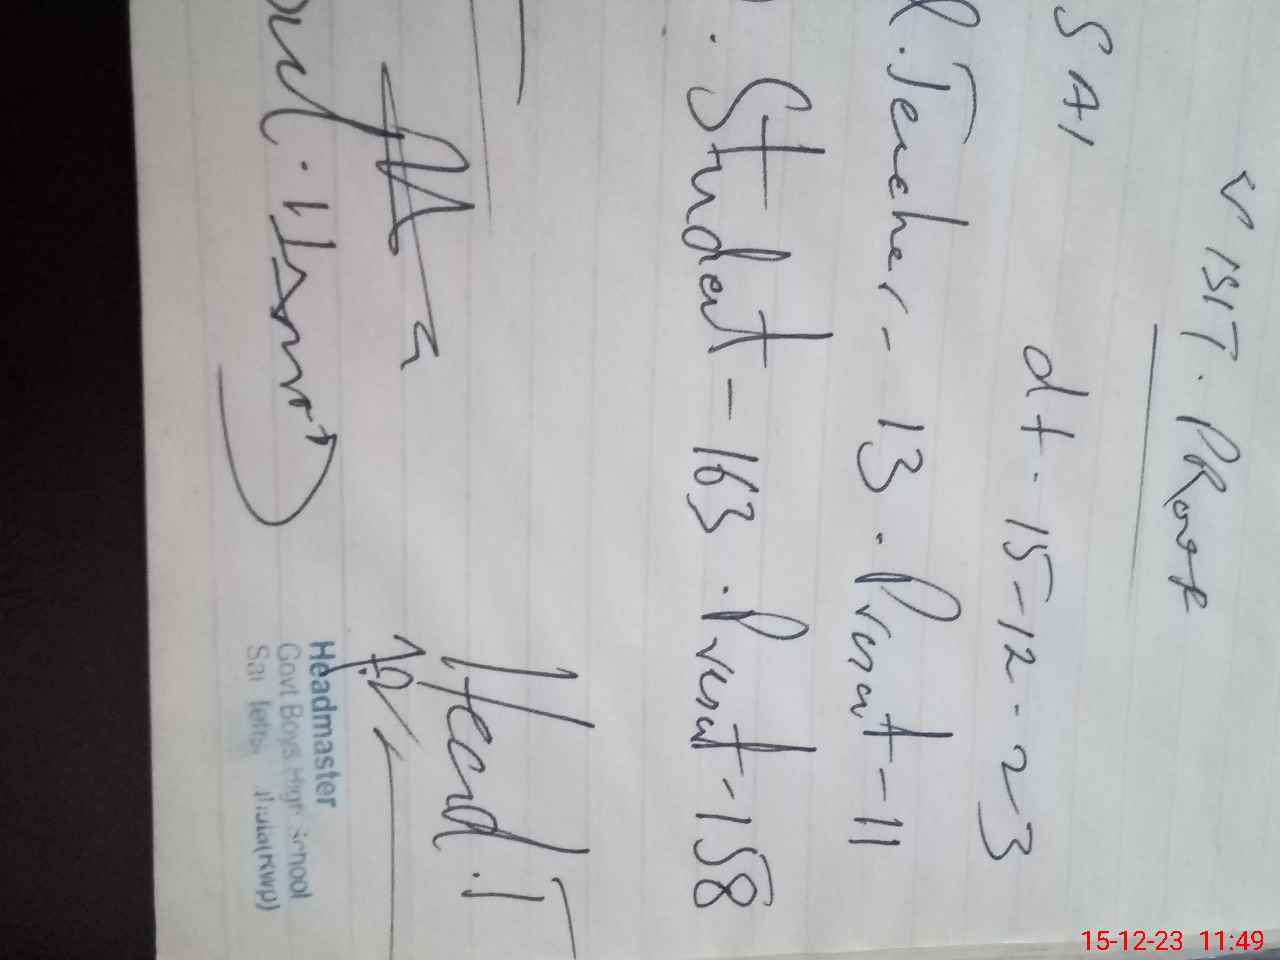 VISIT. PRooF
SAI
dt. 15-12-23
Teacher - 13. Presnt - 11
Student - 163. Presnt - 158
Head.T
Headmaster
Govt Boys High School
Sai
15-12-23 11:49